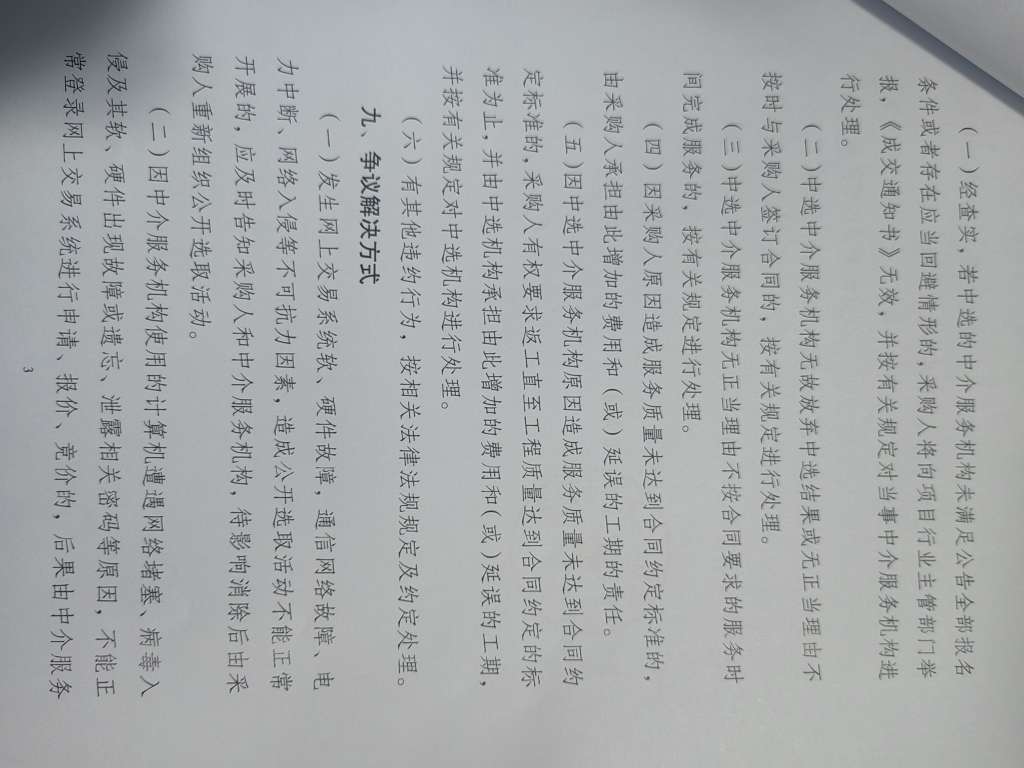 （一）经查实，若中选的中介服务机构未满足公告全部报名
条件或者存在应当回避情形的，采购人将向项目行业主管部门举
报，《成交通知书》无效，并按有关规定对当事中介服务机构进
行处理。
（二）中选中介服务机构无故放弃中选结果或无正当理由不
按时与采购人签订合同的，按有关规定进行处理。
（三）中选中介服务机构无正当理由不按合同要求的服务时
间完成服务的，按有关规定进行处理。
（四）因采购人原因造成服务质量未达到合同约定标准的，
由采购人承担由此增加的费用和（或）延误的工期的责任。
（五）因中选中介服务机构原因造成服务质量未达到合同约
定标准的，采购人有权要求返工直至工程质量达到合同约定的标
准为止，并由中选机构承担由此增加的费用和（或）延误的工期，
并按有关规定对中选机构进行处理。
（六）有其他违约行为，按相关法律法规规定及约定处理。
九、争议解决方式
（一）发生网上交易系统软、硬件故障，通信网络故障、电
力中断、网络入侵等不可抗力因素，造成公开选取活动不能正常
开展的，应及时告知采购人和中介服务机构，待影响消除后由采
购人重新组织公开选取活动。
（二）因中介服务机构使用的计算机遭遇网络堵塞、病毒入
侵及其软、硬件出现故障或遗忘、泄露相关密码等原因，不能正
常登录网上交易系统进行申请、报价、竞价的，后果由中介服务
3